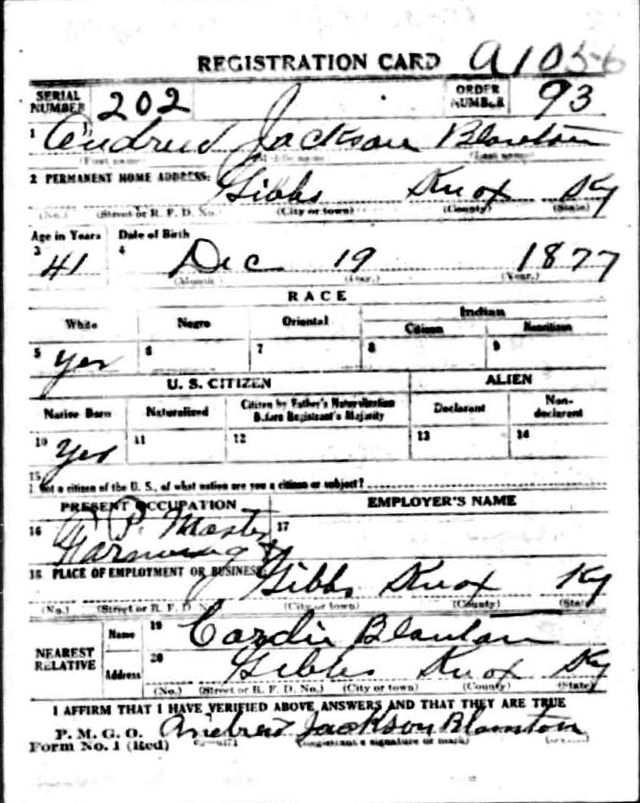 REGISTRATION CARD A1056
SERIAL NUMBER 202 ORDER NUMBER 93
1 Andrew Jackson Blanton
(First name) (Middle name) (Last name)
2 PERMANENT HOME ADDRESS: Gibbs Knox Ky
(No.) (Street or R. F. D. No.) (City or town) (County) (State)
Age in Years Date of Birth
3 41 4 Dec 19 1877
(Month) (Year.)
RACE
White Negro Oriental Indian
Citizen Noncitizen
5 Yes 6 7 8 9
U. S. CITIZEN ALIEN
Native Born Naturalized Citizen by Father's Naturalization Before Registrant's Majority Declarant Non-declarant
10 Yes 11 12 13 14
15
If not a citizen of the U. S., of what nation are you a citizen or subject?
PRESENT OCCUPATION EMPLOYER'S NAME
16 P. Master 17
Farming
18 PLACE OF EMPLOYMENT OR BUSINESS: Gibbs Knox Ky
(No.) (Street or R. F. D. No.) (City or town) (County) (State)
NEAREST RELATIVE Name 19 Cardie Blanton
Address 20 Gibbs Knox Ky
(No.) (Street or R. F. D. No.) (City or town) (County) (State)
I AFFIRM THAT I HAVE VERIFIED ABOVE ANSWERS AND THAT THEY ARE TRUE
P. M. G. O. Andrew Jackson Blanton
Form No. 1 (Red) (Registrant's signature or mark)